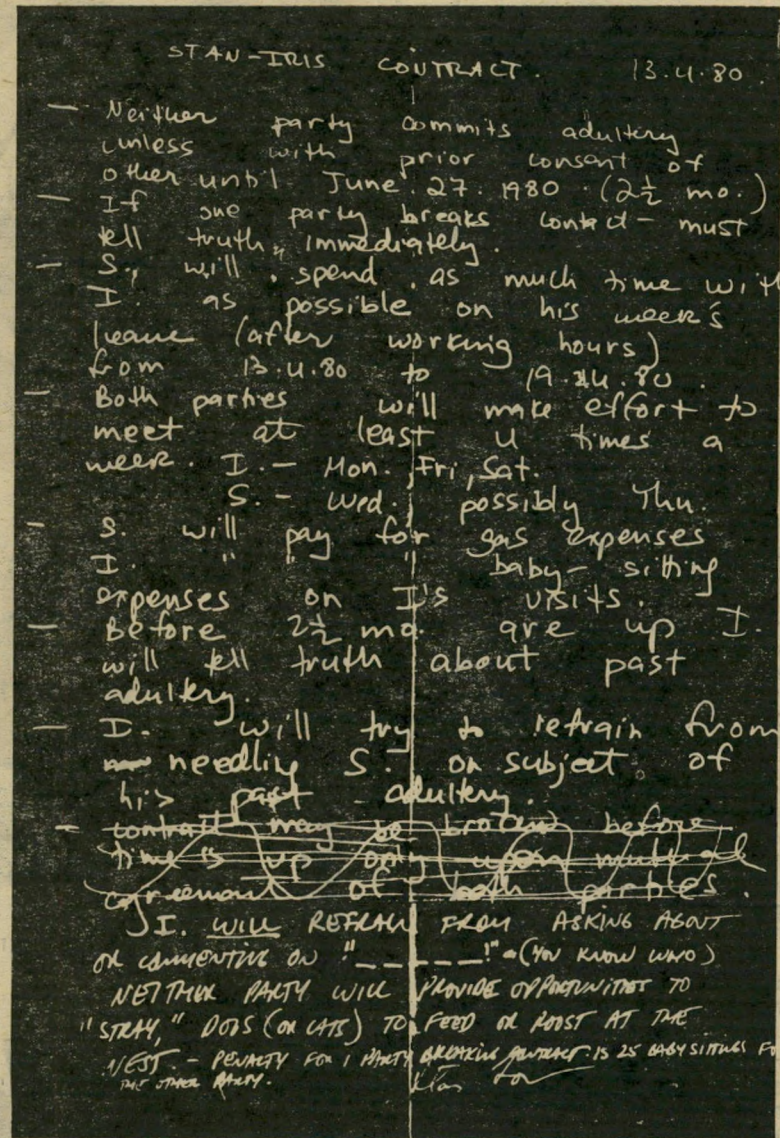 STAN-IRIS CONTRACT. 13.4.80.
— Neither party commits adultery
unless with prior consent of
other until June. 27. 1980. (2½ mo.)
— If one party breaks contact - must
tell truth, immediately.
— S. will spend as much time with
I. as possible on his week's
leave (after working hours)
from 13.4.80 to 19.4.80.
— Both parties will make effort to
meet at least 4 times a
week. I. - Mon., Fri, Sat.
S. - Wed. possibly Thu.
— S. will pay for gas expenses
I. " " " baby-sitting
expenses on I's visits.
— Before 2½ mo. are up I.
will tell truth about past
adultery.
— I. will try to refrain from
needling S. on subject of
his past adultery.
— contract may be broken before
time is up only upon mutual
agreement of both parties.
I. WILL REFRAIN FROM ASKING ABOUT
OR COMMENTING ON "_ _ _ _ _ _!" - (YOU KNOW WHO)
NEITHER PARTY WILL PROVIDE OPPORTUNITIES TO
"STRAY," DOGS (OR CATS) TO FEED OR ROOST AT THE
NEST. - PENALTY FOR 1 PARTY BREAKING CONTRACT. IS 25 BABYSITTINGS FO
THE OTHER PARTY. Stan